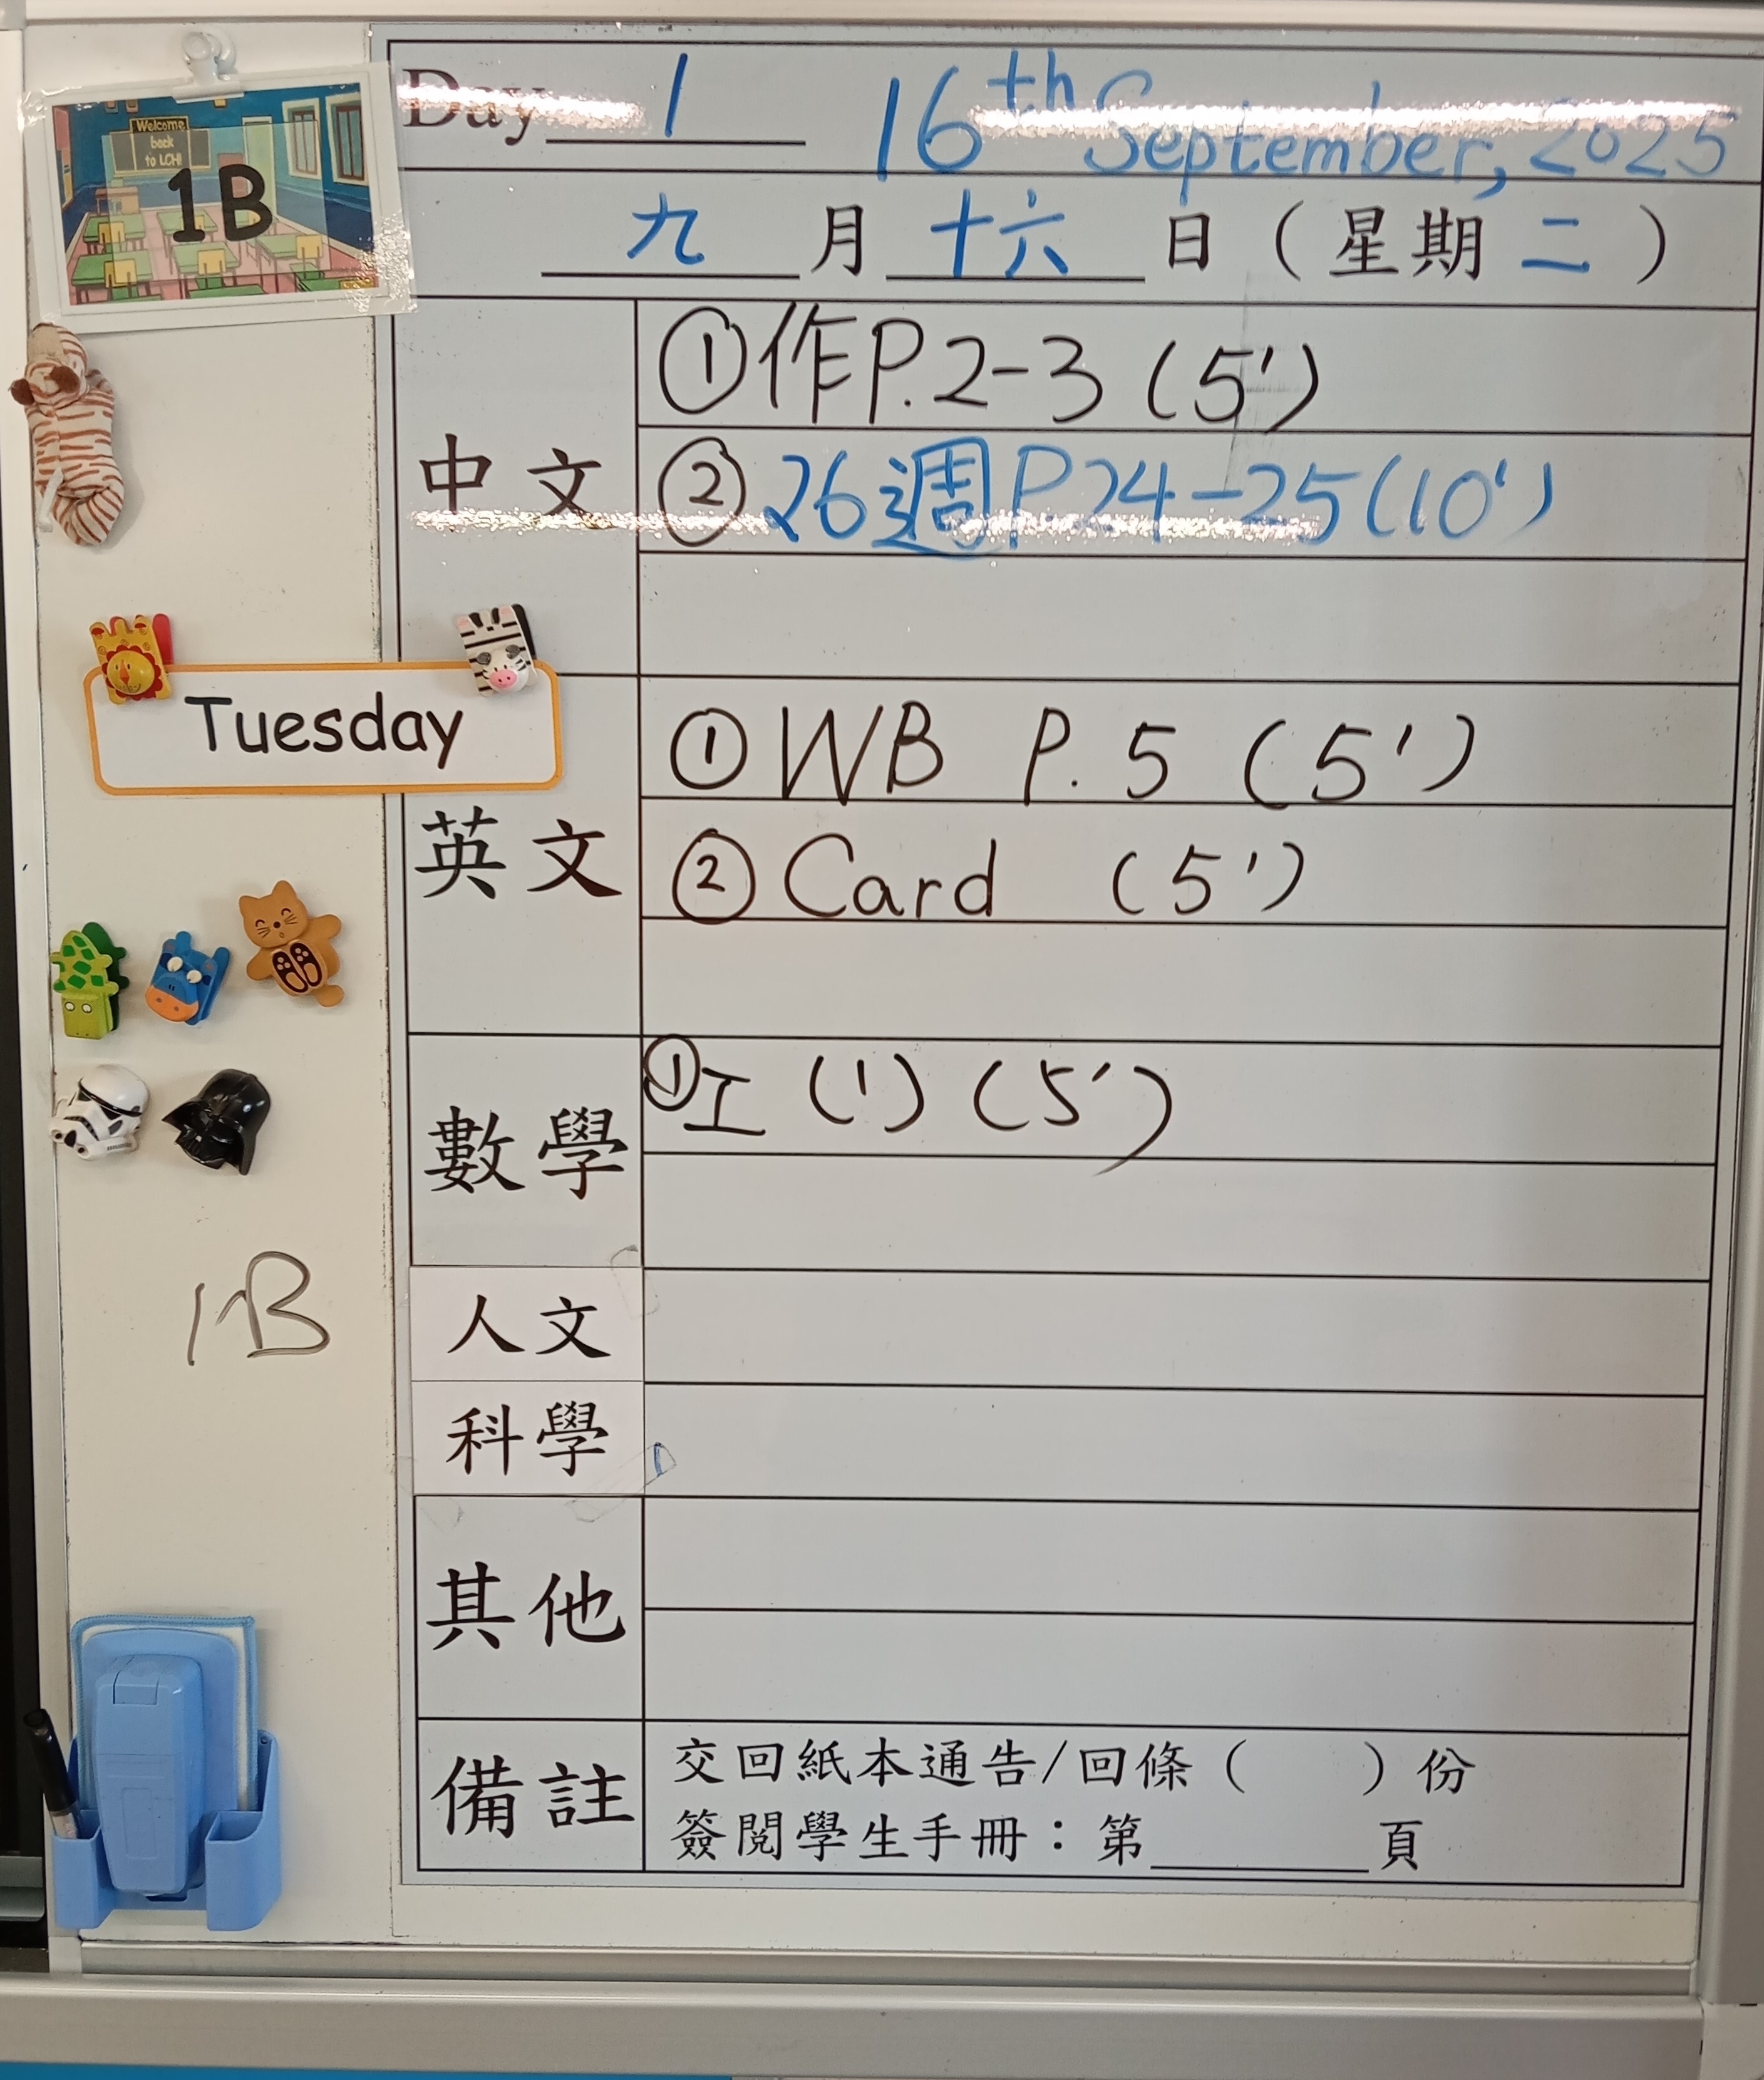 Day 1 16th September, 2025
九 月 十六 日 ( 星期 二 )
Welcome
back
to LCH!
1B
中文
①作P.2-3 (5')
②26週P.24-25(10')
Tuesday
英文
① WB P. 5 (5')
② Card (5')
數學
①工 (1) (5')
1B
人文
科學
其他
備註
交回紙本通告/回條 ( ) 份
簽閱學生手冊：第______頁